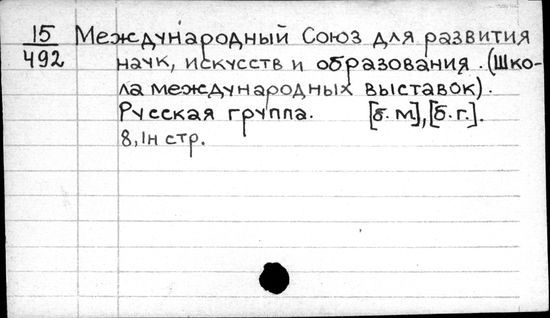 15 Международный Союз для развития
492 наук, искусств и образования. (Шко-
ла международных выставок).
Русская группа. [б.м], [б.г.].
8, 1н стр.